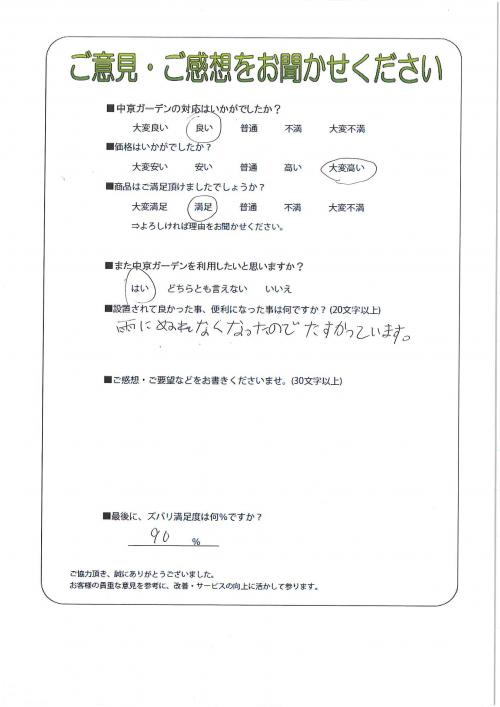 ご意見・ご感想をお聞かせください
■中京ガーデンの対応はいかがでしたか？
大変良い 良い 普通 不満 大変不満
■価格はいかがでしたか？
大変安い 安い 普通 高い 大変高い
■商品はご満足頂けましたでしょうか？
大変満足 満足 普通 不満 大変不満
⇒よろしければ理由をお聞かせください。
■また中京ガーデンを利用したいと思いますか？
はい どちらとも言えない いいえ
■設置されて良かった事、便利になった事は何ですか？(20文字以上)
雨にぬれなくなったのでたすかっています。
■ご感想・ご要望などをお書きくださいませ。(30文字以上)
■最後に、ズバリ満足度は何%ですか？
90 %
ご協力頂き、誠にありがとうございました。
お客様の貴重な意見を参考に、改善・サービスの向上に活かして参ります。